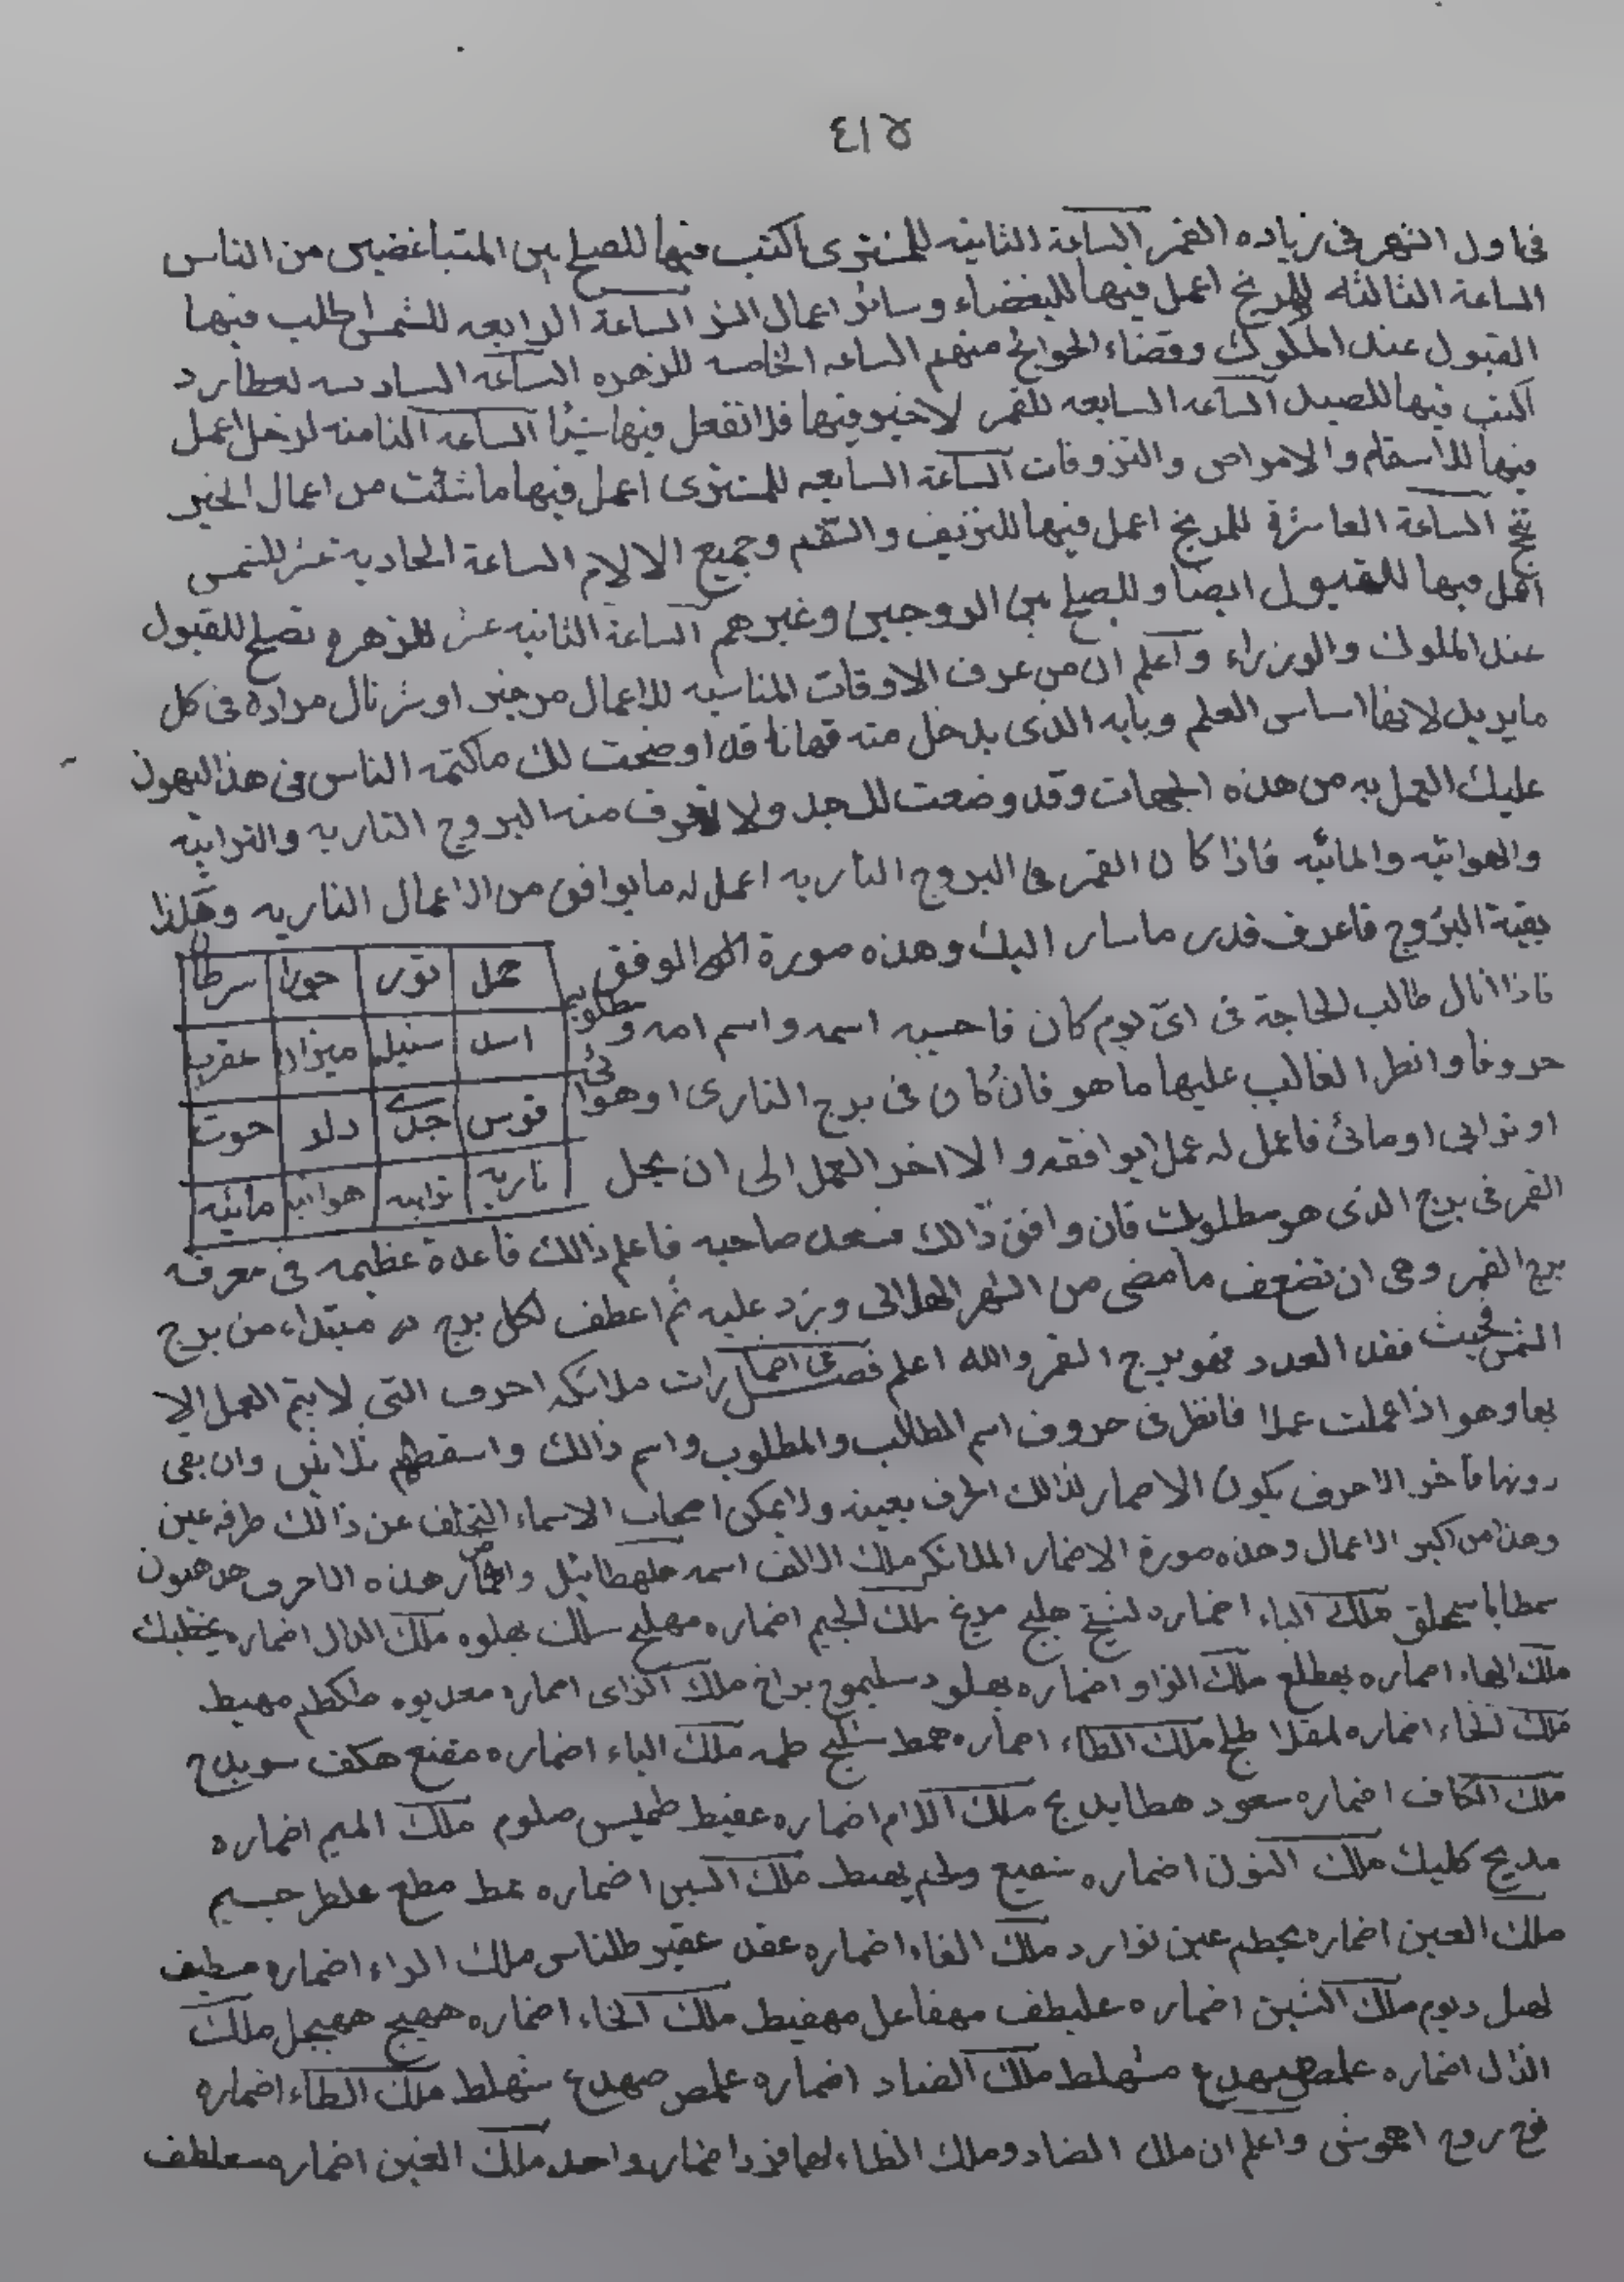 ٤١٧
فى اول الشهر فى زياده القمر الساعة الثانيه للمشترى اكتب فيها للصلح بين المتباغضين من الناس
الساعة الثالثه للمريخ اعمل فيها للبغضاء وسائر اعمال الشر الساعة الرابعه للشمس اطلب فيها
القبول عند الملوك وقضاء الحوائج منهم الساعه الخامسه للزهره الساعه السادسه لعطارد
اكتب فيها للصيد الساعه السابعه للقمر لا خير فيها فلا تفعل فيها شيئا الساعه الثامنه لزحل اعمل
فيها للاسقام والامراض والنزوفات الساعة السابعه للمشترى اعمل فيها ما شئت من اعمال الخير
الساعة العاشرة للمريخ اعمل فيها للنزيف والسقم وجميع الالام الساعة الحادية عشر للشمس
اعمل فيها للقبول ايضا وللصلح بين الزوجين وغيرهم الساعة الثانيه عشر للزهره تصلح للقبول
عند الملوك والوزراء واعلم ان من عرف الاوقات المناسبه للاعمال من خير او شر نال مراده فى كل
ما يريد لانها اساس العلم وبابه الذى يدخل منه فها انا قد اوضحت لك ما كتمه الناس فى هذا ليهون
عليك العمل به من هذه الجهات وقد وضعت لك جدولا تعرف منه البروج الناريه والترابيه
والهوائيه والمائيه فاذا كان القمر فى البروج الناريه اعمل له ما يوافق من الاعمال الناريه وهكذا
بقية البروج فاعرف قدر ما سار اليك وهذه صورة الوفق
حمل ثور جوزا سرطان
فاذا انال طالب الحاجة فى اى يوم كان فاحسبه اسمه واسم امه ومطلوبه
اسد سنبله ميزان عقرب
حروفا وانظر الغالب عليها ما هو فان كان فى برج النارى او هوائى
قوس جدى دلو حوت
او ترابى او مائى فاعمل له عملا يوافقه والا اخر العمل الى ان يحل
ناريه ترابيه هوائيه مائيه
القمر فى برج الذى هو مطلوبك فان وافق ذالك فسعد صاحبه فاعلم ذالك قاعدة عظيمه فى معرفه
برج القمر وهى ان تضعف ما مضى من الشهر الهلالى وزد عليه ثم اعطف لكل برج مبتداء من برج
الشمس فحيث فقد العدد فهو برج القمر والله اعلم فصل فى اضمارات ملائكه احرف التى لا يتم العمل الا
بها وهو اذا عملت عملا فانظر فى حروف اسم الطالب والمطلوب واسم ذالك واسقطهم ثلاثين وان بقى
دونها فآخر الاحرف يكون الاضمار لذالك الحرف بعينه ولا يمكن اصحاب الاسماء التخلف عن ذالك طرفه عين
وهذا من اكبر الاعمال وهذه صورة الاضمار الملائكه ملك الالف اسمه طهطائيل واضمار هذه الاحرف هدهيون
ملك الباء اضماره هليج مريخ ملك الجيم اضماره مهليج ملك الدال اضماره
ملك الهاء اضماره يهطلع ملك الواو اضماره يهلود سليموح براخ ملك الزاى اضماره معديوه طكطم مهيط
ملك الحاء اضماره ملك الطاء اضماره همط شليح طمه ملك الياء اضماره مقنع هكف سويدح
ملك الكاف اضماره سعود ملك اللام اضماره عفيط طميس صلوم ملك الميم اضماره
مديح كليك ملك النون اضماره ملك السين اضماره عط مطع علطر جسيم
ملك العين اضماره عجطم عين نوارد ملك الفاء اضماره عقد عقير طلناس ملك الراء اضماره
ملك الشين اضماره عليطف مهفاعل مهفيط ملك الخاء اضماره ههيج ههيجل ملك
الذال اضماره ملك الضاد اضماره عملص صهدع شهلط ملك الظاء اضماره
واعلم ان ملك الضاد وملك الظاء لهما فرد اضمار واحد ملك الغين اضماره